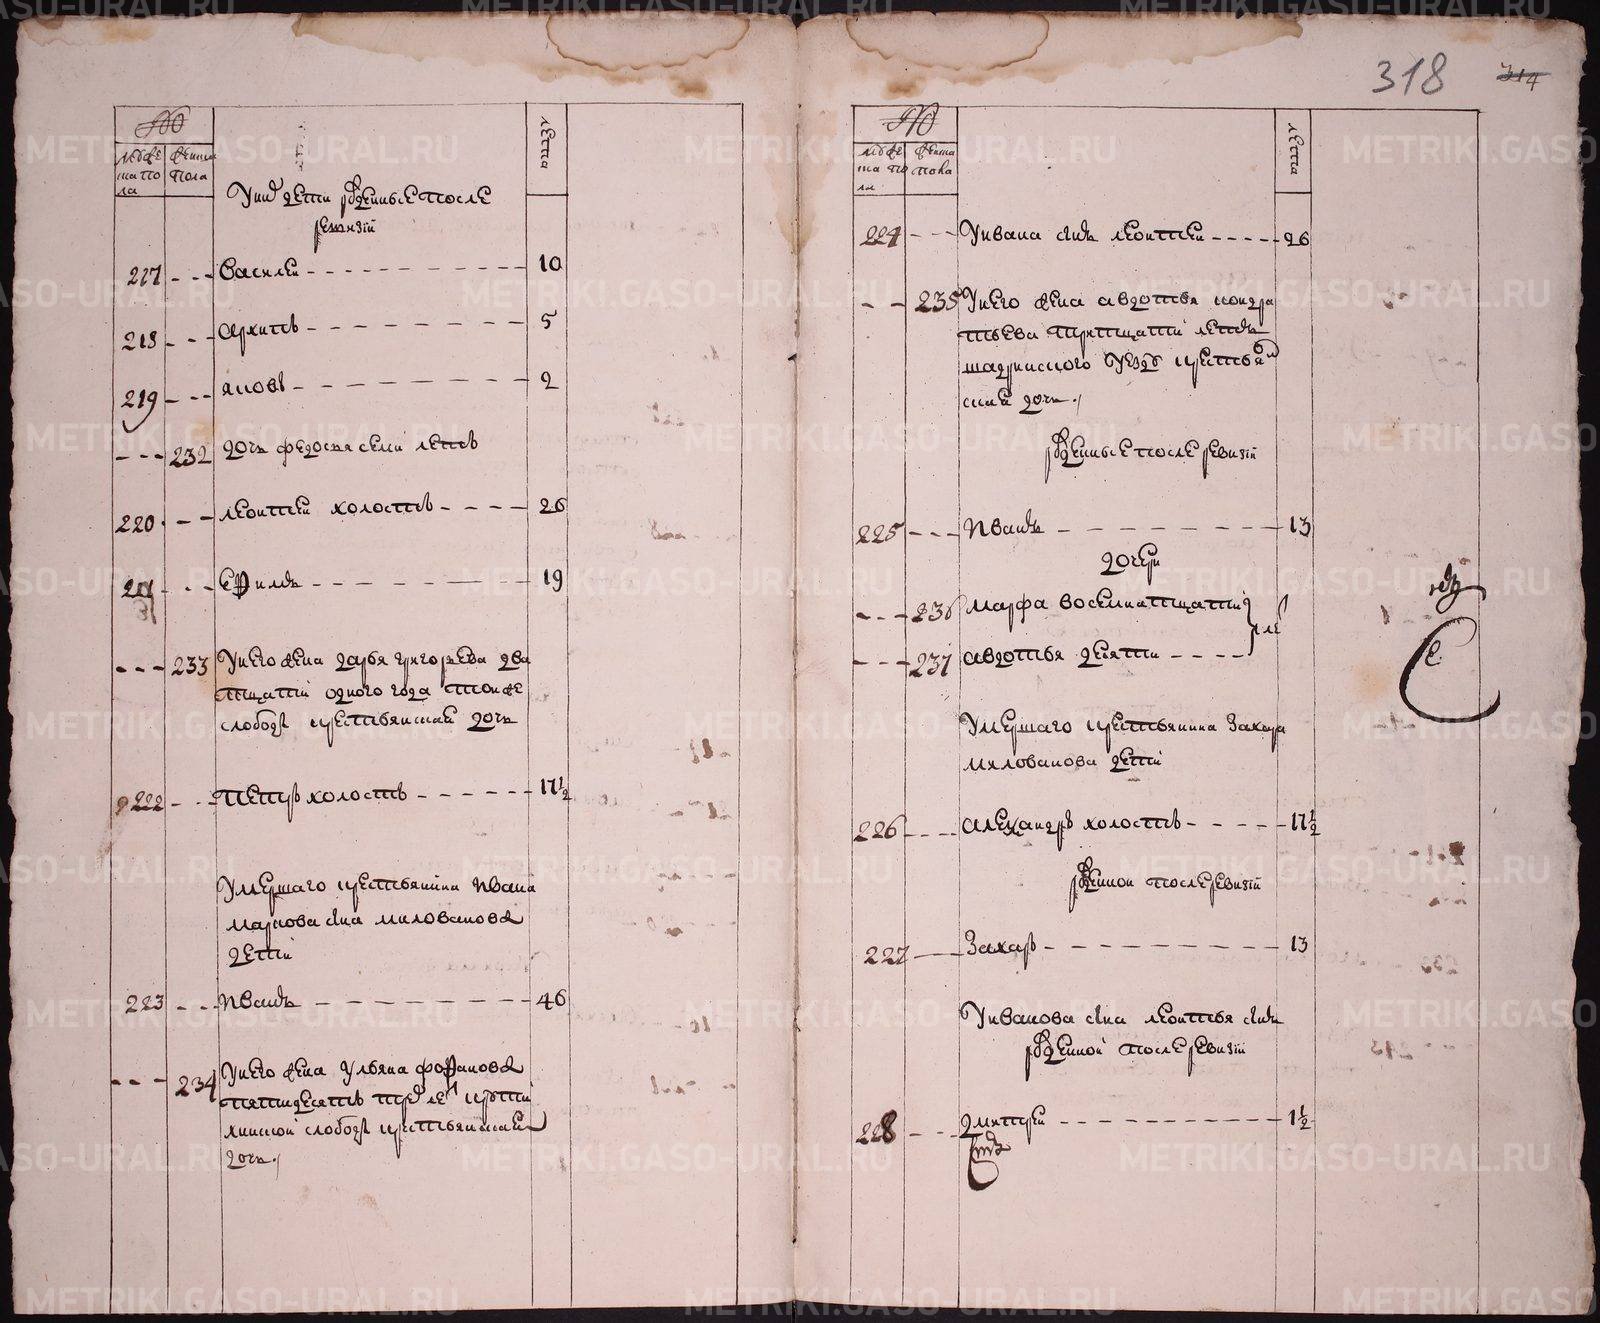 318
314
№
мужеска пола
женска пола
лета
У них дети рожденные после
ревизии
217 Василей 10
218 Архипъ 5
219 Яковъ 2
232 дочь Федосья семи летъ
220 Леонтей холостъ 26
221 Ефимъ 19
233 У него жена Дарья Григорьева два
тцати одного года тои же
слободы крестьянская дочь
222 Петръ холостъ 17½
Умершаго крестьянина Ивана
Маркова сна Милованова
дети
223 Иванъ 46
234 У него жена Ульяна Фофанова
пятидесять трех ле
слободы крестьянская
дочь
№
мужеска пола
женска пола
лета
224 У Ивана снъ Леонтей 26
235 У него жена Авдотья Кондра
тьева тритцати летъ
Шадринского уезду крестья
нская дочь
рожденные после ревизии
225 Иванъ 13
дочери
236 Марфа восемнатцати
ле
237 Авдотья девяти
Умершаго крестьянина Захара
Милованова дети
226 Александръ холостъ 17½
рожденной после ревизии
227 Захаръ 13
У Иванова сна Леонтья снъ
рожденной после ревизии
228 Дмитрей 1½
METRIKI.GASO-URAL.RU